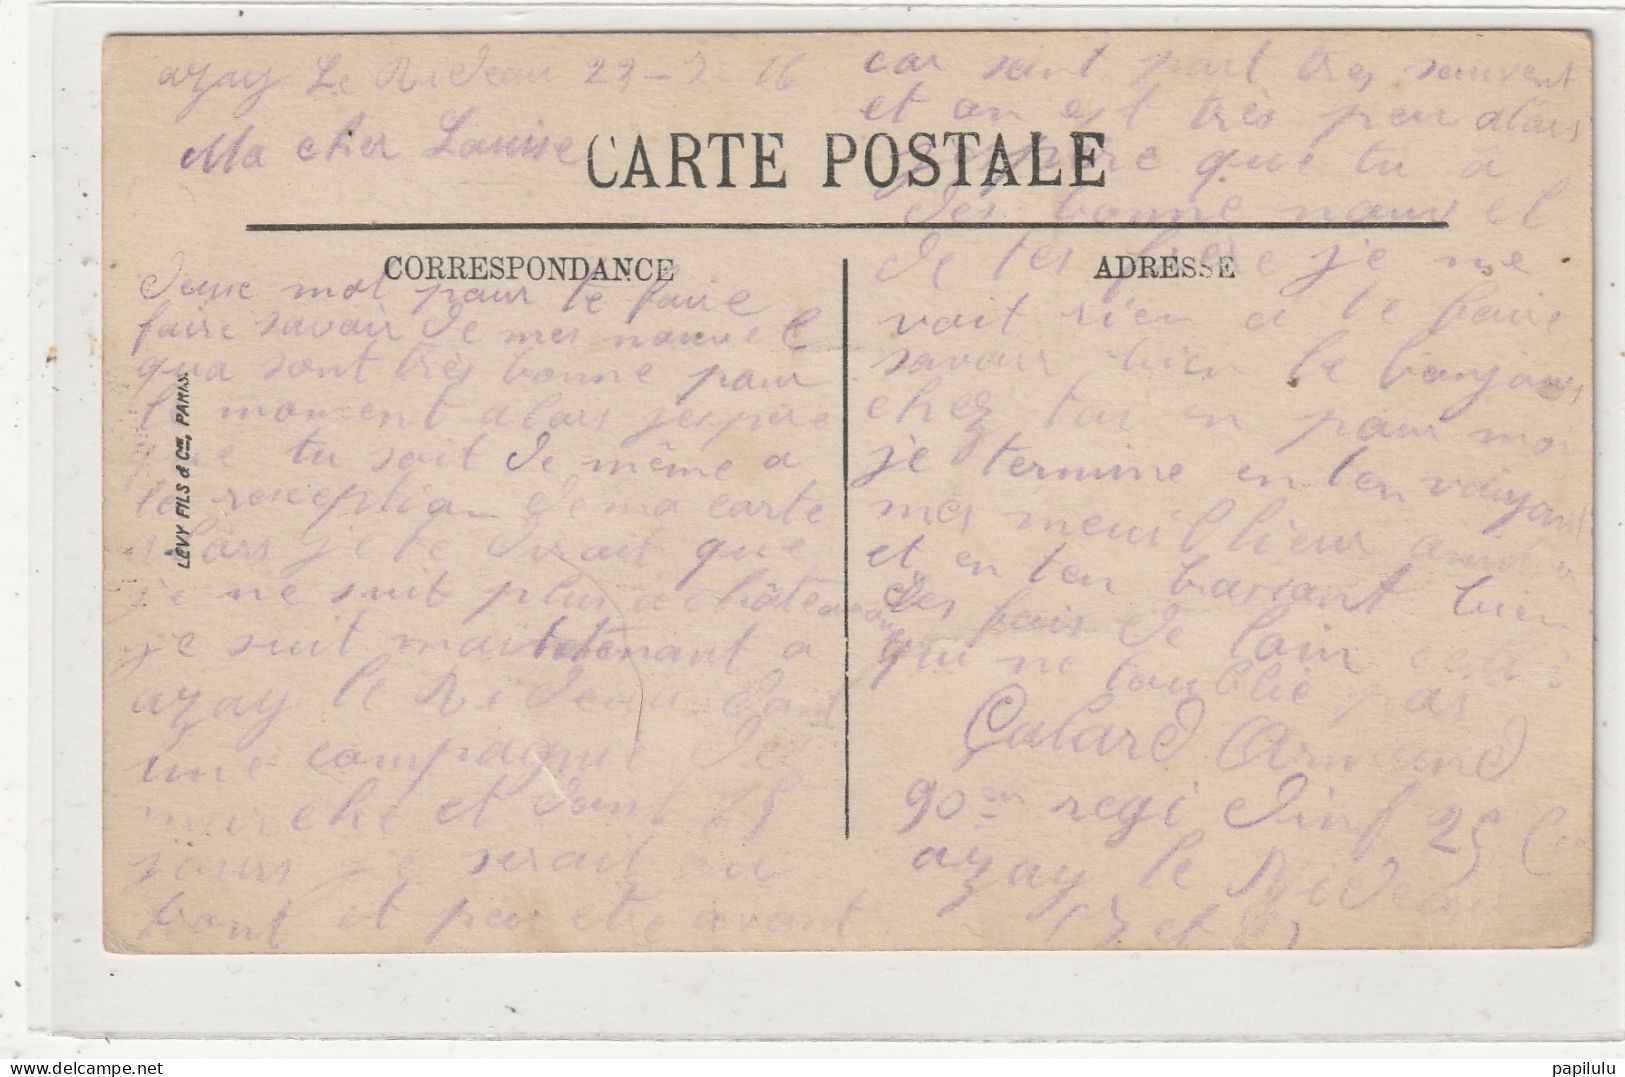 azay Le Rideau 23 - 2 - 16
Ma cher Louise
CARTE POSTALE
CORRESPONDANCE
Deuse mot pour te faire
faire savoir de mes nouvel
qua sont très bonne pour
le moment alors jespère
que tu soit de même a
la resception de ma carte
alors je te dirait que
je ne suit plus a châteauroux
je suit maintenant a
azay le Rideau dant
une compagnie de
marche et dant 15
jours je serait au
front et peu etre avant
LÉVY FILS & Cie, PARIS.
car sant part tres souvent
et on est très peu alors
jespère que tu a
des bonne nouvel
ADRESSE
de tes frère je me
voit rien a te faire
savoir bien le bonjours
chez toi en pour moi
je termine en ten voiyant
mes meuillieur amitié
et en ten barsant bien
des fois de loin
qui ne toublie pas
Galard Armand
90 em regi dinf 25 Cie
azay le Rideau